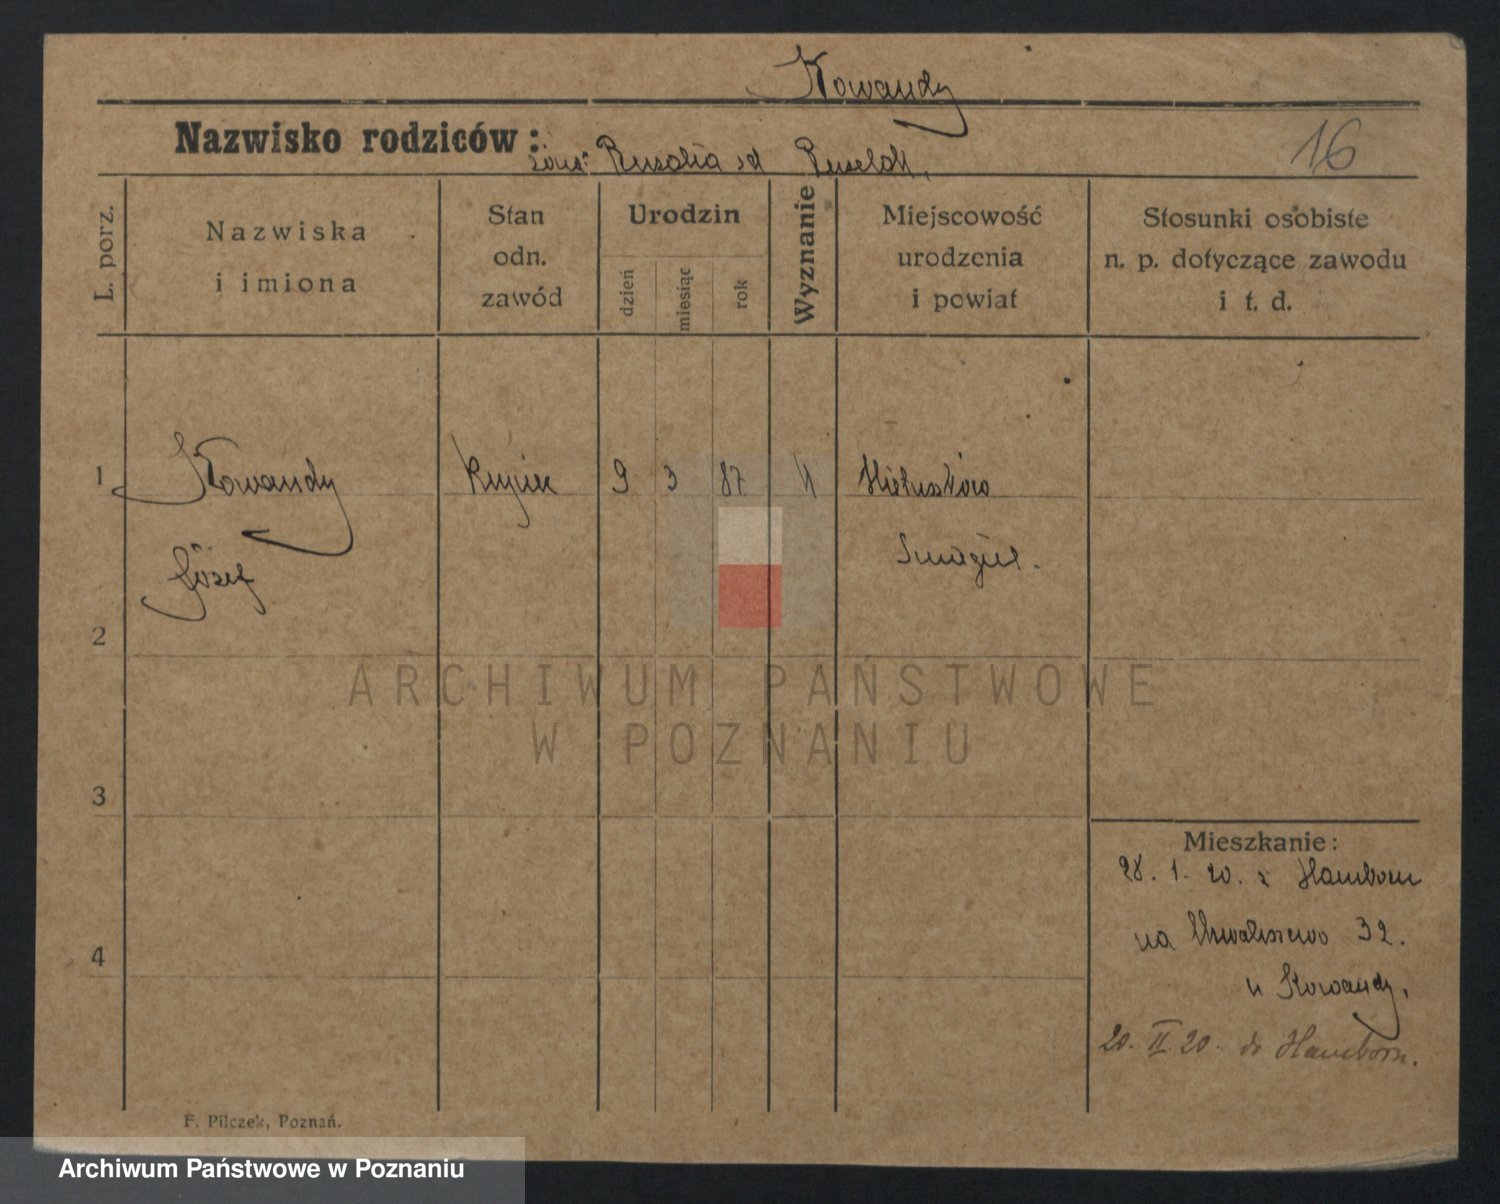 Kowandy
Nazwisko rodziców:
16
L. porz.
Nazwiska
i imiona
Stan
odn.
zawód
Urodzin
dzień
miesiąc
rok
Wyznanie
Miejscowość
urodzenia
i powiat
Stosunki osobiste
n. p. dotyczące zawodu
i t. d.
1 Kowandy 9 3 87
Józef Smigiel.
2
ARCHIWUM PAŃSTWOWE
W POZNANIU
3
Mieszkanie:
28. 1. 20. z Hamborn
na Chwaliszewo 32.
4
u Kowandy.
20. II. 20. do Hamborn.
F. Pilczek, Poznań.
Archiwum Państwowe w Poznaniu